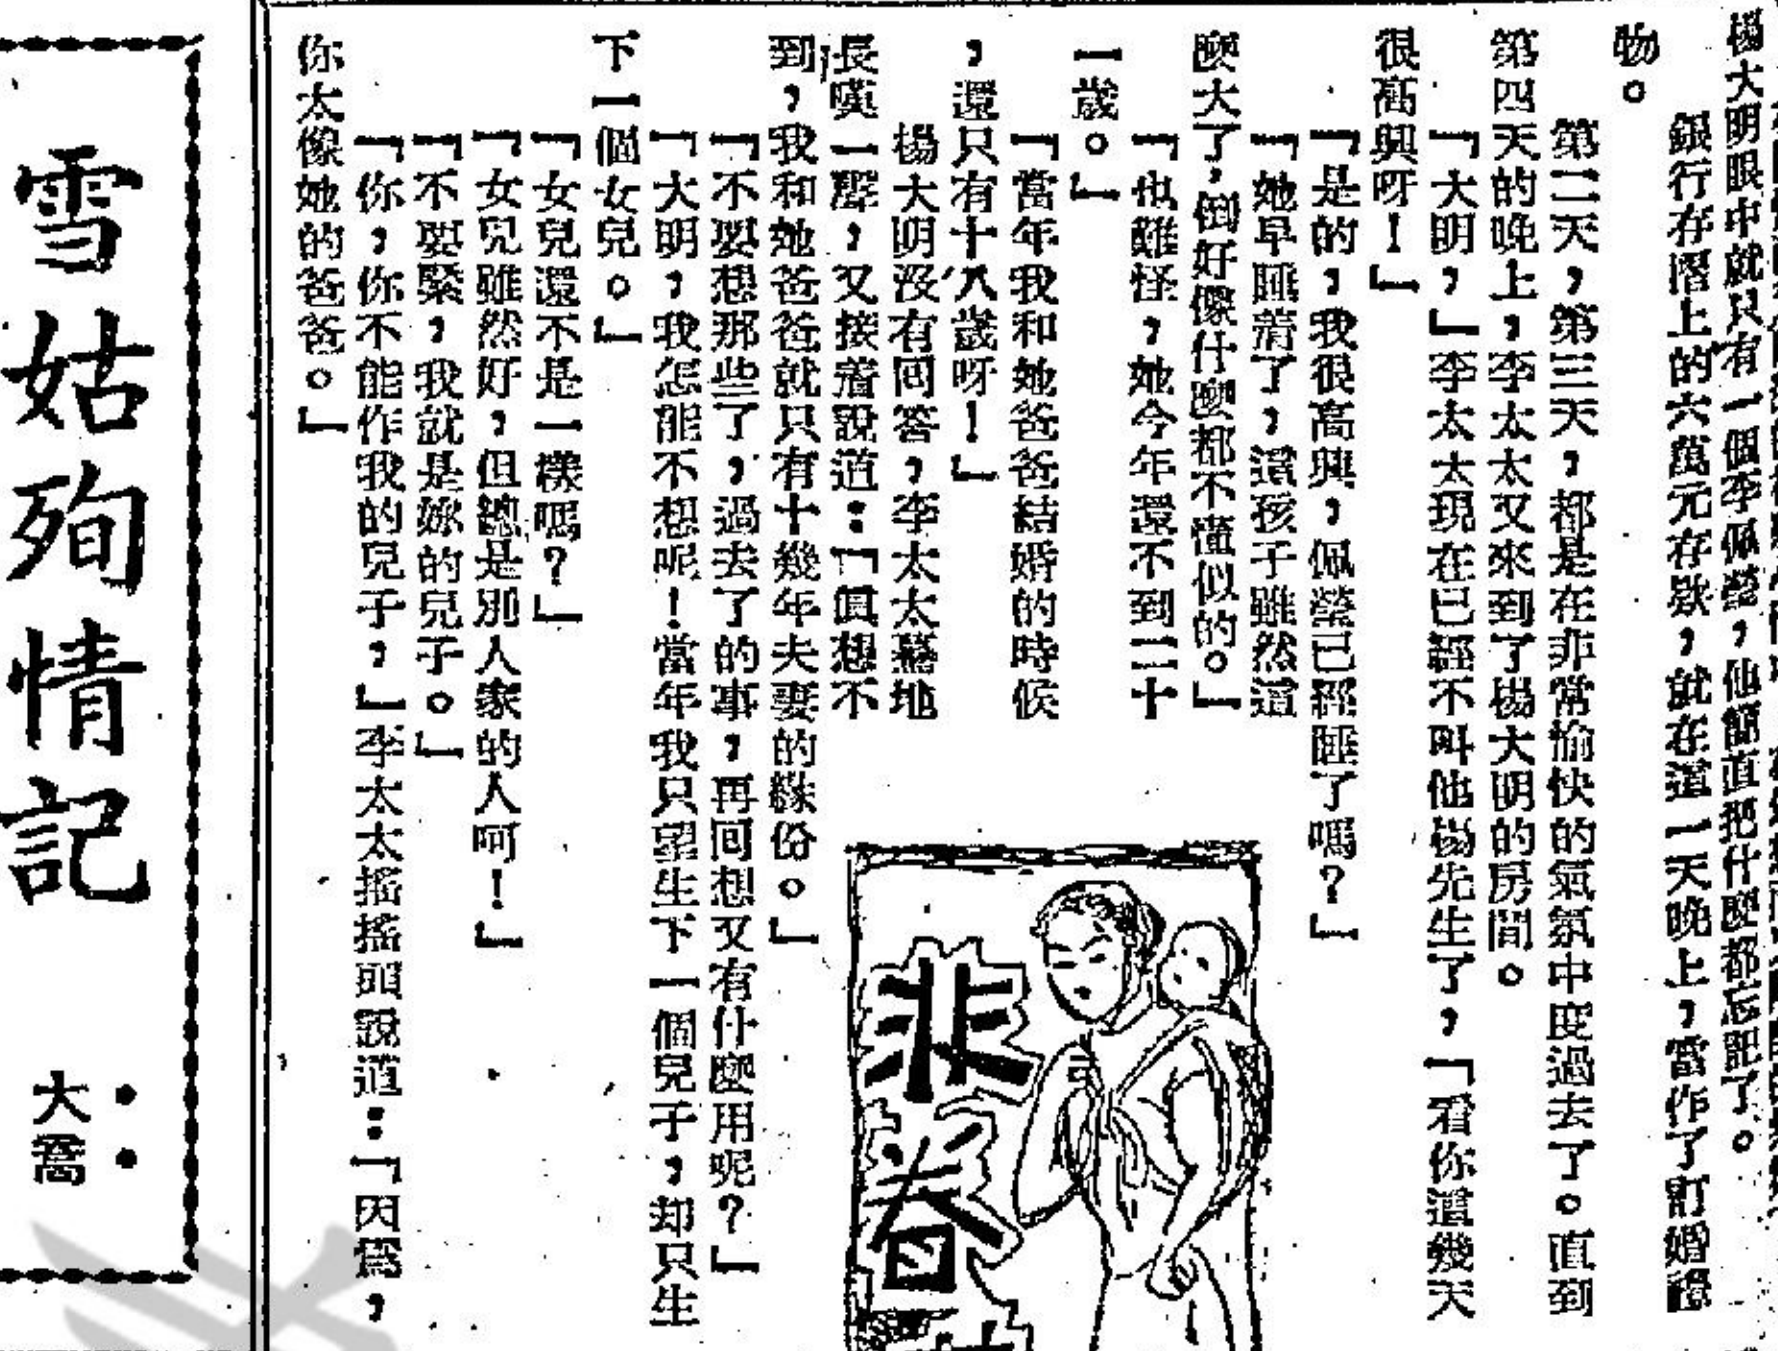 楊大明眼中就只有一個李佩瑩，他簡直把什麼都忘記了。
銀行存摺上的六萬元存欵，就在這一天晚上，當作了訂婚禮
物。
第二天，第三天，都是在非常愉快的氣氛中度過去了。直到
第四天的晚上，李太太又來到了楊大明的房間。
「大明，」李太太現在已經不叫他楊先生了，「看你這幾天
很高興呀！」
「是的，我很高興，佩瑩已經睡了嗎？」
「她早睡着了，這孩子雖然這
麼大了，倒好像什麼都不懂似的。」
「也難怪，她今年還不到二十
一歲。」
「當年我和她爸爸結婚的時候
，還只有十八歲呀！」
楊大明沒有回答，李太太驀地
長嘆一聲，又接着說道：「眞想不
到，我和她爸爸就只有十幾年夫妻的緣份。」
「不要想那些了，過去了的事，再回想又有什麼用呢？」
「大明，我怎能不想呢！當年我只望生下一個兒子，却只生
下一個女兒。」
「女兒還不是一樣嗎？」
「女兒雖然好，但總是別人家的人呵！」
「不要緊，我就是妳的兒子。」
「你，你不能作我的兒子，」李太太搖搖頭說道：「因爲，
你太像她的爸爸。」
非春
雪姑殉情記
大喬